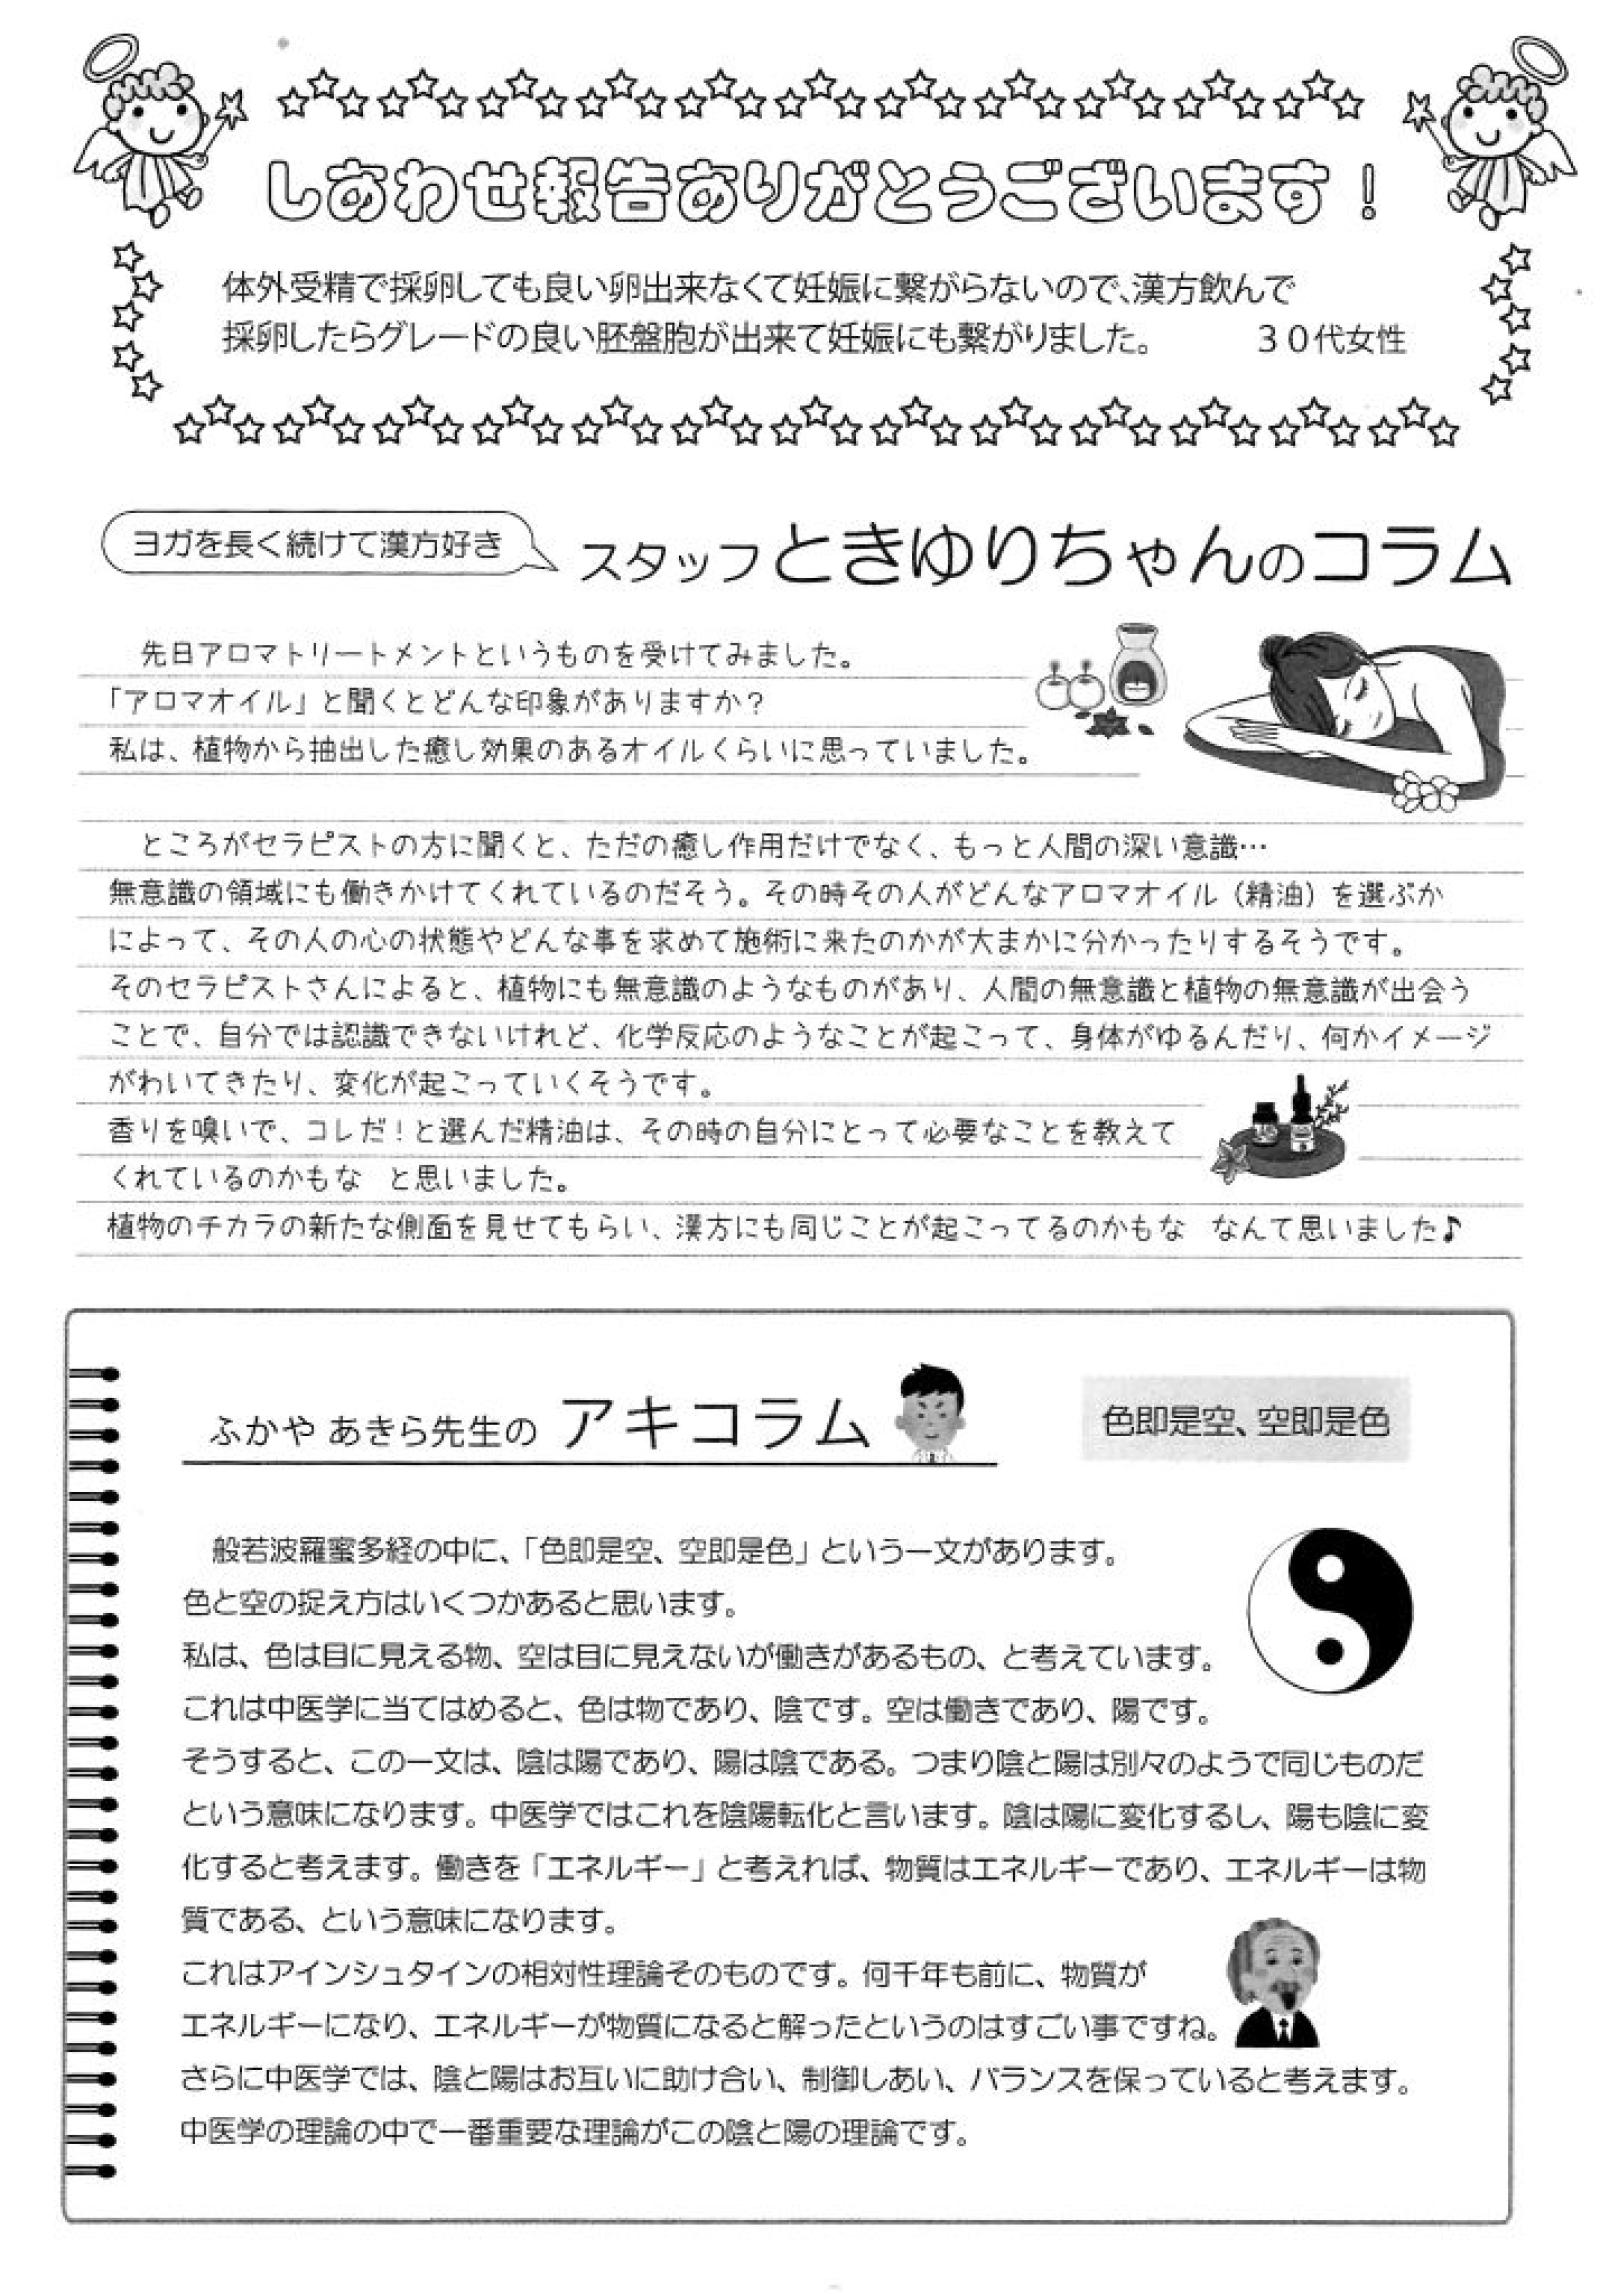 しあわせ報告ありがとうございます！
体外受精で採卵しても良い卵出来なくて妊娠に繋がらないので、漢方飲んで
採卵したらグレードの良い胚盤胞が出来て妊娠にも繋がりました。　　　３０代女性
ヨガを長く続けて漢方好き
スタッフときゆりちゃんのコラム
先日アロマトリートメントというものを受けてみました。
「アロマオイル」と聞くとどんな印象がありますか？
私は、植物から抽出した癒し効果のあるオイルくらいに思っていました。
ところがセラピストの方に聞くと、ただの癒し作用だけでなく、もっと人間の深い意識…
無意識の領域にも働きかけてくれているのだそう。その時その人がどんなアロマオイル（精油）を選ぶか
によって、その人の心の状態やどんな事を求めて施術に来たのかが大まかに分かったりするそうです。
そのセラピストさんによると、植物にも無意識のようなものがあり、人間の無意識と植物の無意識が出会う
ことで、自分では認識できないけれど、化学反応のようなことが起こって、身体がゆるんだり、何かイメージ
がわいてきたり、変化が起こっていくそうです。
香りを嗅いで、コレだ！と選んだ精油は、その時の自分にとって必要なことを教えて
くれているのかもな　と思いました。
植物のチカラの新たな側面を見せてもらい、漢方にも同じことが起こってるのかもな　なんて思いました♪
ふかや あきら先生の アキコラム
色即是空、空即是色
般若波羅蜜多経の中に、「色即是空、空即是色」という一文があります。
色と空の捉え方はいくつかあると思います。
私は、色は目に見える物、空は目に見えないが働きがあるもの、と考えています。
これは中医学に当てはめると、色は物であり、陰です。空は働きであり、陽です。
そうすると、この一文は、陰は陽であり、陽は陰である。つまり陰と陽は別々のようで同じものだ
という意味になります。中医学ではこれを陰陽転化と言います。陰は陽に変化するし、陽も陰に変
化すると考えます。働きを「エネルギー」と考えれば、物質はエネルギーであり、エネルギーは物
質である、という意味になります。
これはアインシュタインの相対性理論そのものです。何千年も前に、物質が
エネルギーになり、エネルギーが物質になると解ったというのはすごい事ですね。
さらに中医学では、陰と陽はお互いに助け合い、制御しあい、バランスを保っていると考えます。
中医学の理論の中で一番重要な理論がこの陰と陽の理論です。